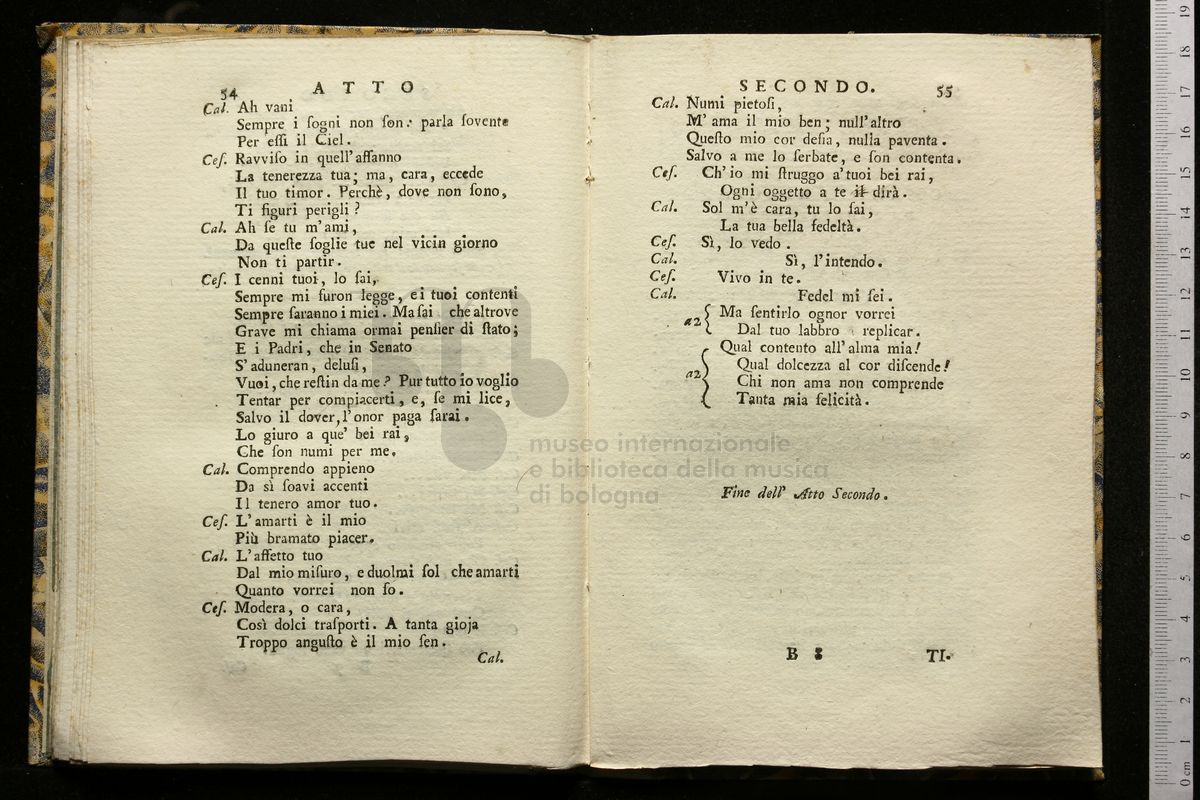 54
ATTO
Cal. Ah vani
Sempre i ſogni non ſon: parla ſovente
Per eſſi il Ciel.
Ceſ. Ravviſo in quell' affanno
La tenerezza tua; ma, cara, eccede
Il tuo timor. Perchè, dove non ſono,
Ti figuri perigli?
Cal. Ah ſe tu m' ami,
Da queſte ſoglie tue nel vicin giorno
Non ti partir.
Ceſ. I cenni tuoi, lo ſai,
Sempre mi furon legge, e i tuoi contenti
Sempre ſaranno i miei. Ma ſai che altrove
Grave mi chiama ormai penſier di ſtato;
E i Padri, che in Senato
S' aduneran, deluſi,
Vuoi, che reſtin da me? Pur tutto io voglio
Tentar per compiacerti, e, ſe mi lice,
Salvo il dover, l' onor paga ſarai.
Lo giuro a que' bei rai,
Che ſon numi per me.
Cal. Comprendo appieno
Da sì ſoavi accenti
Il tenero amor tuo.
Ceſ. L' amarti è il mio
Più bramato piacer.
Cal. L' affetto tuo
Dal mio miſuro, e duolmi ſol che amarti
Quanto vorrei non ſo.
Ceſ. Modera, o cara,
Così dolci traſporti. A tanta gioja
Troppo anguſto è il mio ſen.
Cal.
SECONDO.
55
Cal. Numi pietoſi,
M' ama il mio ben; null' altro
Queſto mio cor deſia, nulla paventa.
Salvo a me lo ſerbate, e ſon contenta.
Ceſ. Ch' io mi ſtruggo a' tuoi bei rai,
Ogni oggetto a te il dirà.
Cal. Sol m' è cara, tu lo ſai,
La tua bella fedeltà.
Ceſ. Sì, lo vedo.
Cal. Sì, l' intendo.
Ceſ. Vivo in te.
Cal. Fedel mi ſei.
a2 Ma ſentirlo ognor vorrei
Dal tuo labbro replicar.
a2 Qual contento all' alma mia!
Qual dolcezza al cor diſcende!
Chi non ama non comprende
Tanta mia felicità.
Fine dell' Atto Secondo.
B
TI.
museo internazionale
e biblioteca della musica
di bologna
0 cm 1 2 3 4 5 6 7 8 9 10 11 12 13 14 15 16 17 18 19